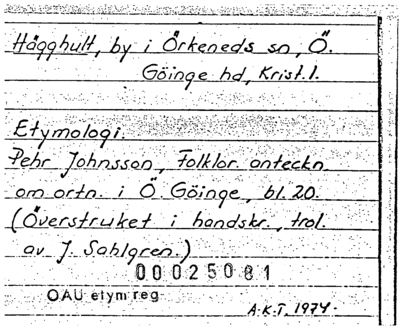 Hägghult, by i Örkeneds sn, Ö.
Göinge hd, Krist. l.
Etymologi.
Pehr Johnsson, Folklor. anteckn.
om ortn. i Ö. Göinge, bl. 20.
(Överstruket i handskr., trol.
av J. Sahlgren.)
00025081
OAU etym reg
A.K.T. 1974.